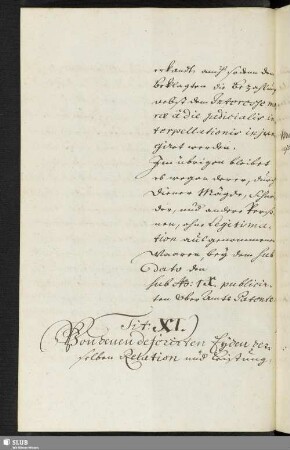 erkandt, auch sodann dem
Beklagten die Bezahlung
nebst dem Interesse mo
ræ à die judicialis in
terpellationis injun
giret werden.
Im übrigen bleibet
es wegen derer, durch
Diener Mägde, Schnei
der, und andere Perso
nen, ohne Legitima
tion ausgenommenen
Waaren, bey dem sub
dato den
sub No: IX. publicir
ten Ober Amts Patente
Tit: XI.
Von denen deferirten Eyden der
selben Relation und Leistung.
SLUB